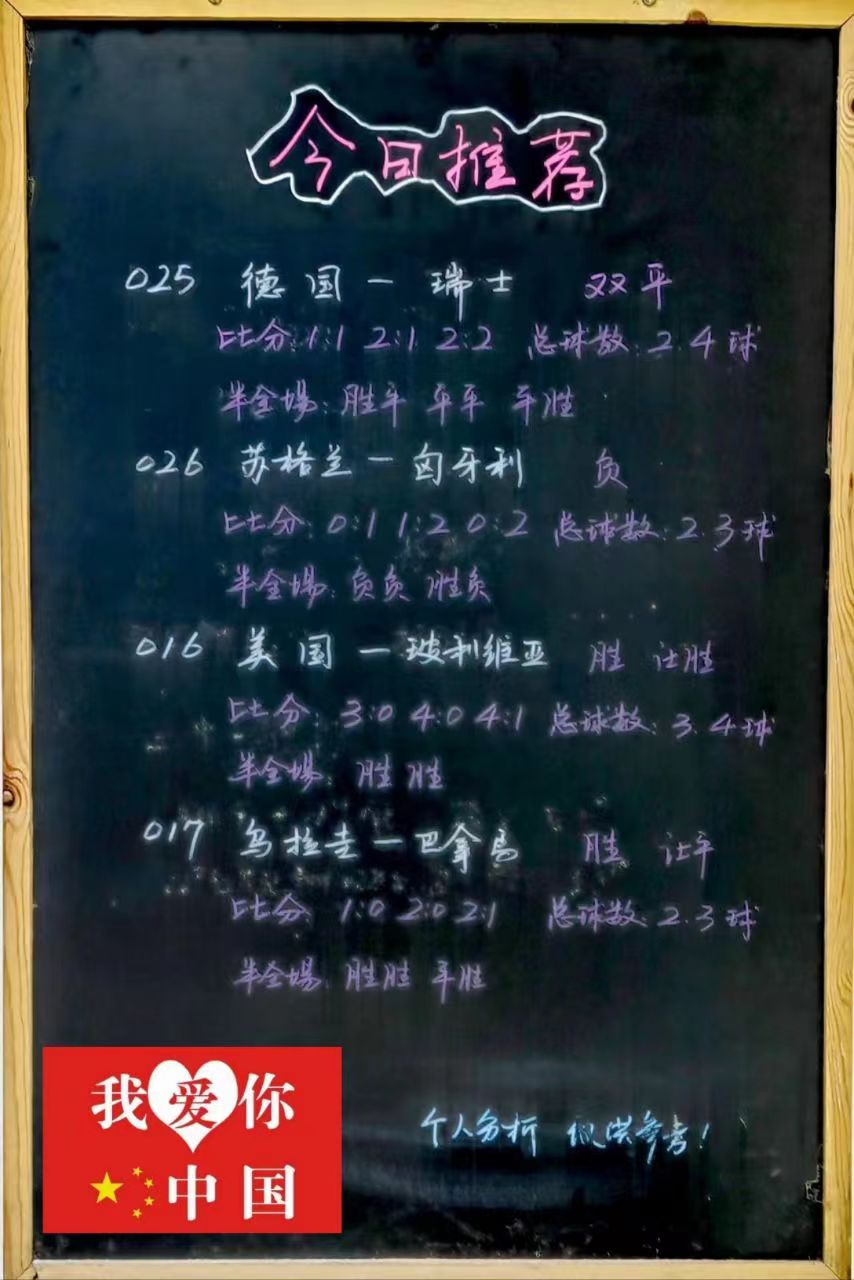 今日推荐
025 德国一瑞士 双平
比分:1:1 2:1 2:2 总球数:2.4球
半全場:胜平 平平 平胜
026 苏格兰一匈牙利 负
比分:0:1 1:2 0:2 总球数:2.3球
半全場:负负 胜负
016 美国一玻利维亚 胜 让胜
比分:3:0 4:0 4:1 总球数:3.4球
半全場:胜胜
017 乌拉圭一巴拿马 胜 让平
比分 1:0 2:0 2:1 总球数:2.3球
半全場:胜胜 平胜
个人分析 仅供参考!
我爱你
中国